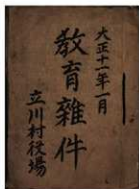 大正十一年一月
教育雑件
立川村役場